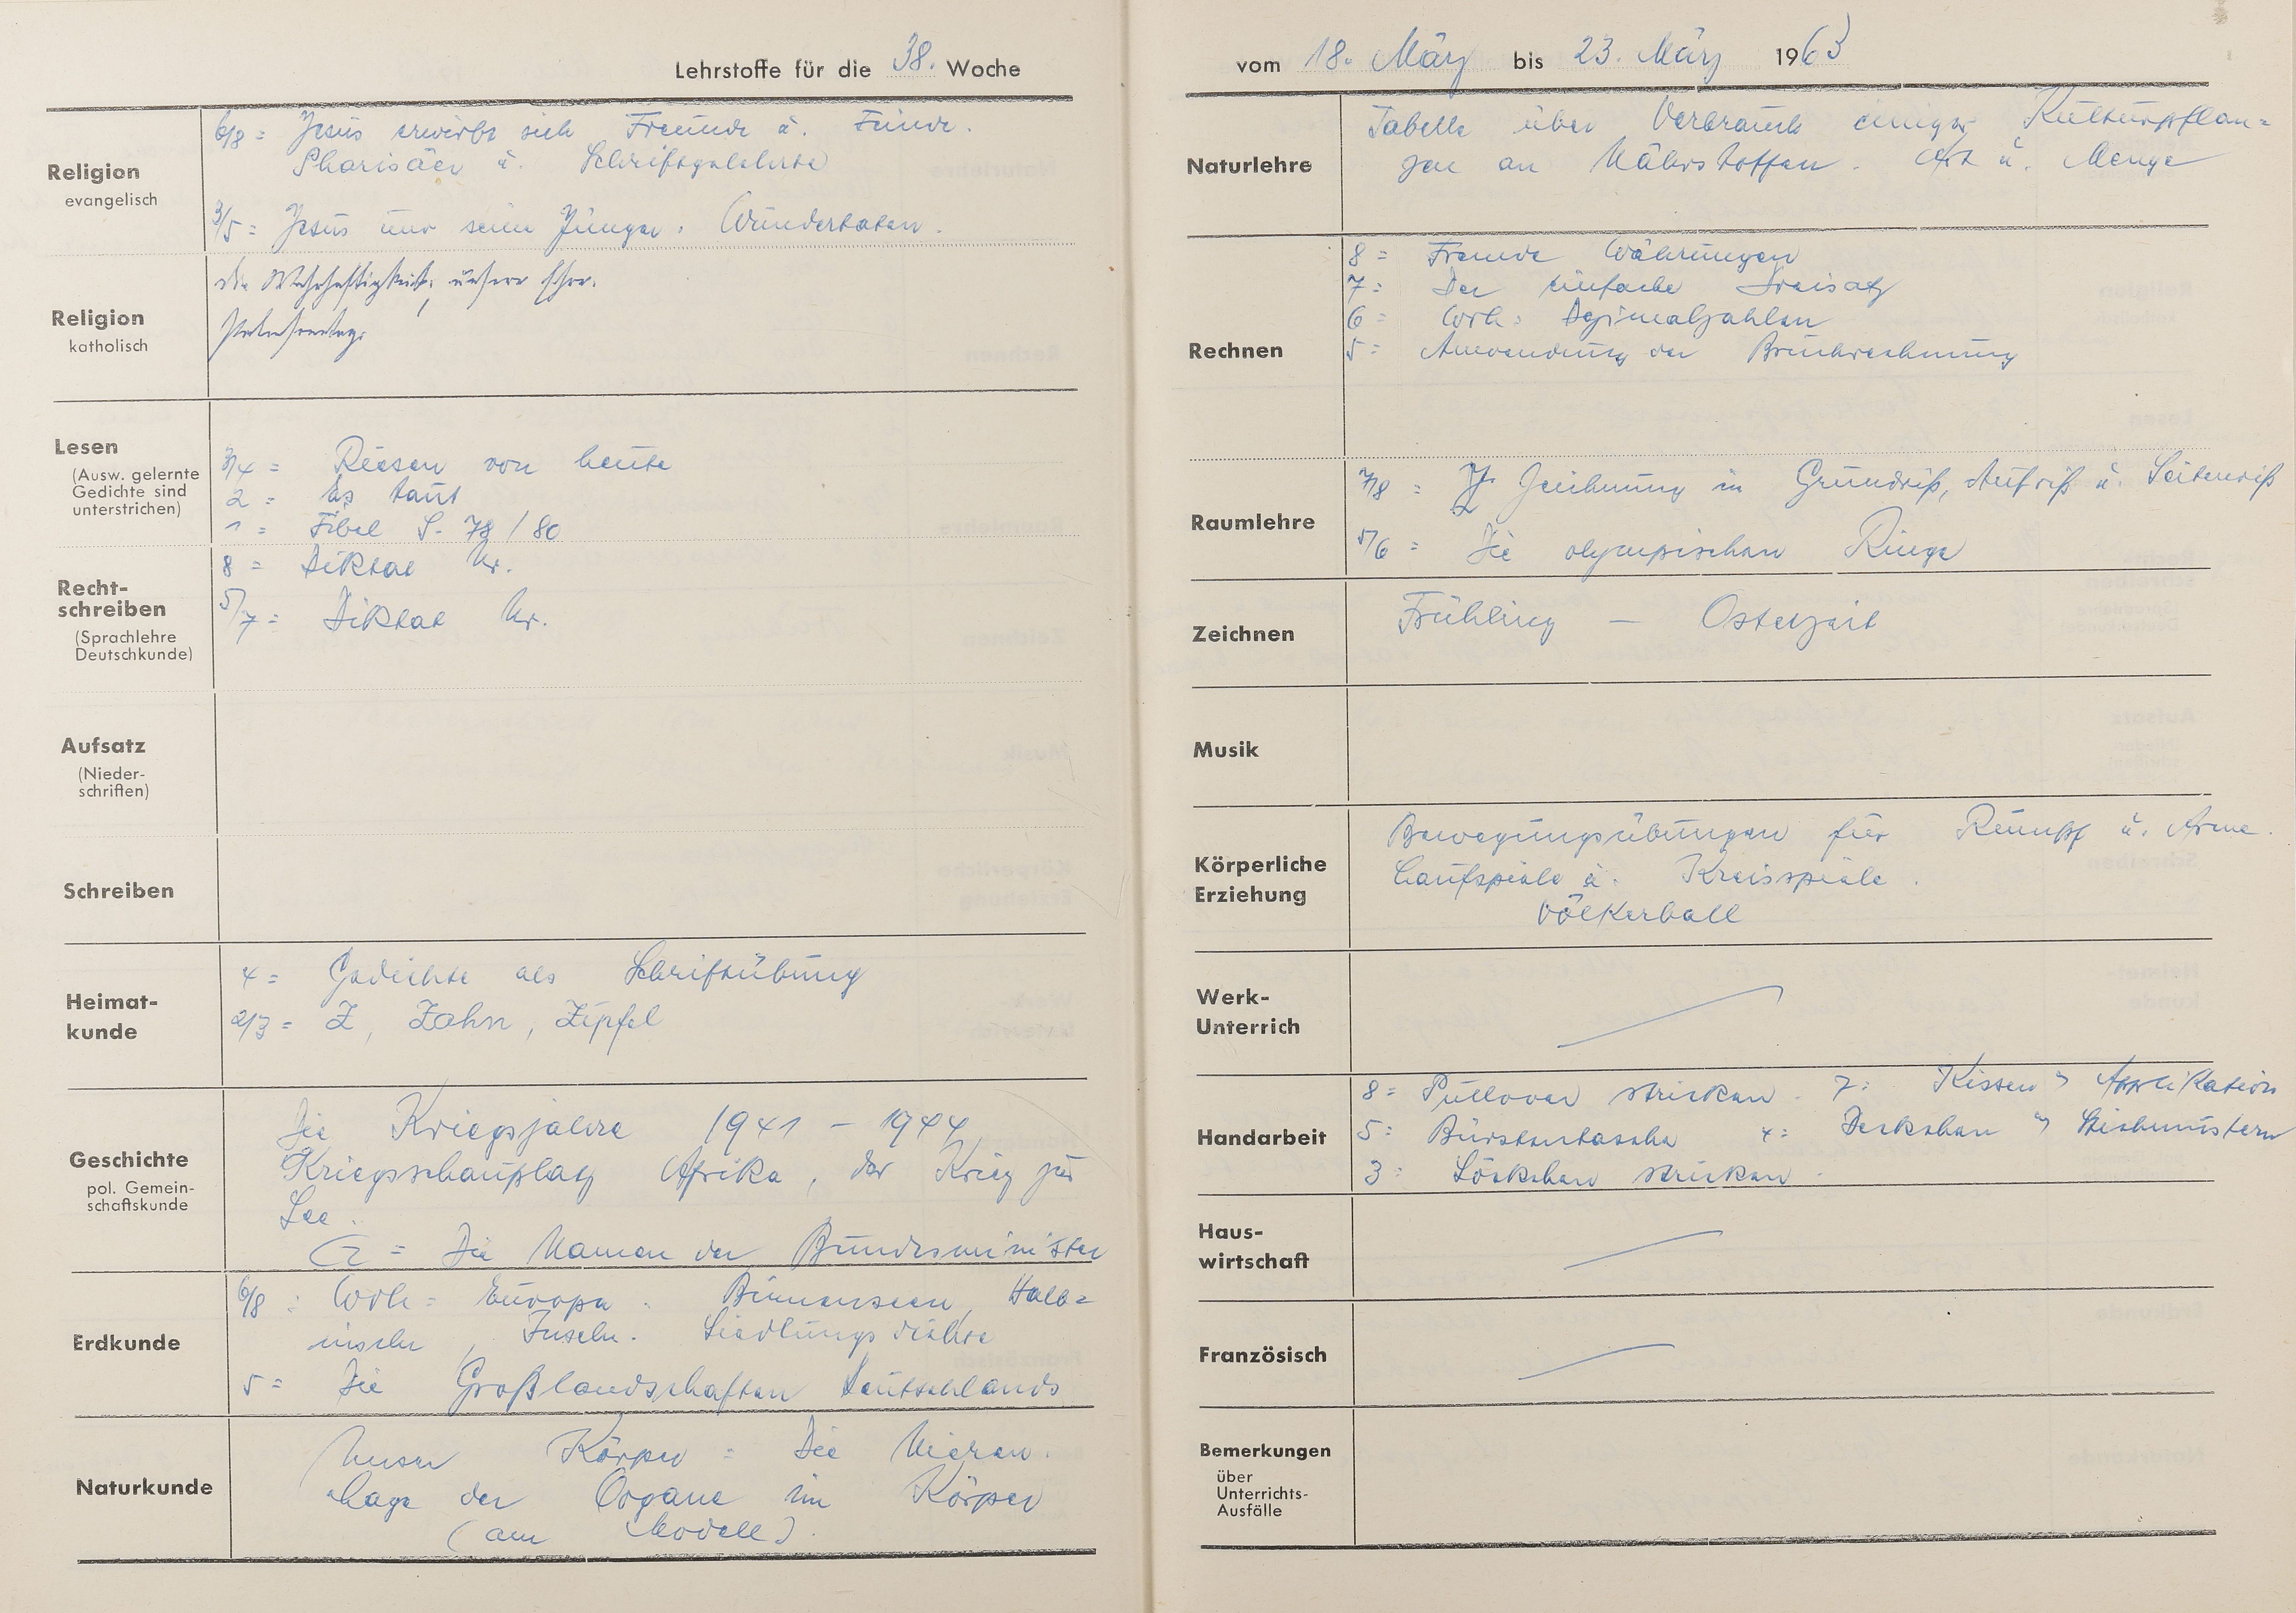 Lehrstoffe für die 38. Woche
Religion
evangelisch
6/8 = Jesus erwirbt sich Freunde u. Feinde.
Pharisäer u. Schriftgelehrte
3/5 = Jesus und seine Jünger. Wundertaten.
Religion
katholisch
Die Wahrhaftigkeit, unsere Ehre.
Palmsonntag.
Lesen
(Ausw. gelernte
Gedichte sind
unterstrichen)
3/4 = Riesen von heute
2 = Es taut
1 = Fibel S. 78 / 80
Recht-
schreiben
(Sprachlehre
Deutschkunde)
8 = Diktat Nr.
5/7 = Diktat Nr.
Aufsatz
(Nieder-
schriften)
Schreiben
Heimat-
kunde
4 = Gedichte als Schriftübung
2/3 = Z, Zahn, Zipfel
Geschichte
pol. Gemein-
schaftskunde
Die Kriegsjahre 1941 - 1944
Kriegsschauplatz Afrika, der Krieg zur
See.
G = Die Namen der Bundesminister
Erdkunde
6/8 : Wdh = Europa. Binnenseen, Halb=
inseln, Inseln. Siedlungsdichte
5 = Die Großlandschaften Deutschlands
Naturkunde
Unser Körper = Die Nieren.
Lage der Organe im Körper
(am Modell).
vom 18. März bis 23. März 1963
Naturlehre
Tabelle über Verbrauch einiger Kulturpflan=
zen an Nährstoffen. Art u. Menge
Rechnen
8 = Fremde Währungen
7 = Der einfache Dreisatz
6 = Wdh: Dezimalzahlen
5 = Anwendung der Bruchrechnung
Raumlehre
7/8 = Zeichnung in Grundriß, Aufriß u. Seitenriß
5/6 = Die olympischen Ringe
Zeichnen
Frühling — Osterzeit
Musik
Körperliche
Erziehung
Bewegungsübungen für Rumpf u. Arme.
Laufspiele u. Kreisspiele.
Völkerball
Werk-
Unterrich
Handarbeit
8 = Pullover stricken. 7: Kissen Applikation
5 = Bürstentasche 4 = Deckchen Stichmustern
3 : Söckchen stricken.
Haus-
wirtschaft
Französisch
Bemerkungen
über
Unterrichts-
Ausfälle